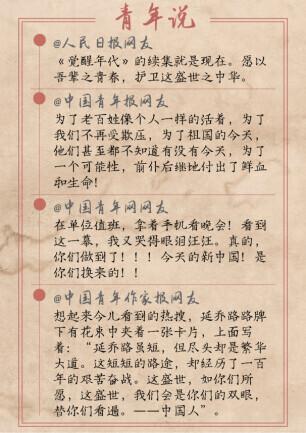 青年说
@人民日报网友
《觉醒年代》的续集就是现在。愿以
吾辈之青春,护卫这盛世之中华。
@中国青年报网友
为了老百姓像个人一样的活着,为了
我们不再受欺压,为了祖国的今天,
他们甚至都不知道有没有今天,为了
一个可能性,前仆后继地付出了鲜血
和生命!
@中国青年网网友
在单位值班,拿着手机看晚会!看到
这一幕,我又哭得眼泪汪汪。真的,
你们做到了!!!今天的新中国!是
你们换来的!!
@中国青年作家报网友
想起来今儿看到的热搜,延乔路路牌
下有花束中夹着一张卡片,上面写
着:“延乔路虽短,但尽头却是繁华
大道。这短短的路途,却经历了一百
年的艰苦奋战。这盛世,如你们所
愿,这盛世,我们会是你们的双眼,
替你们看遍。——中国人”。